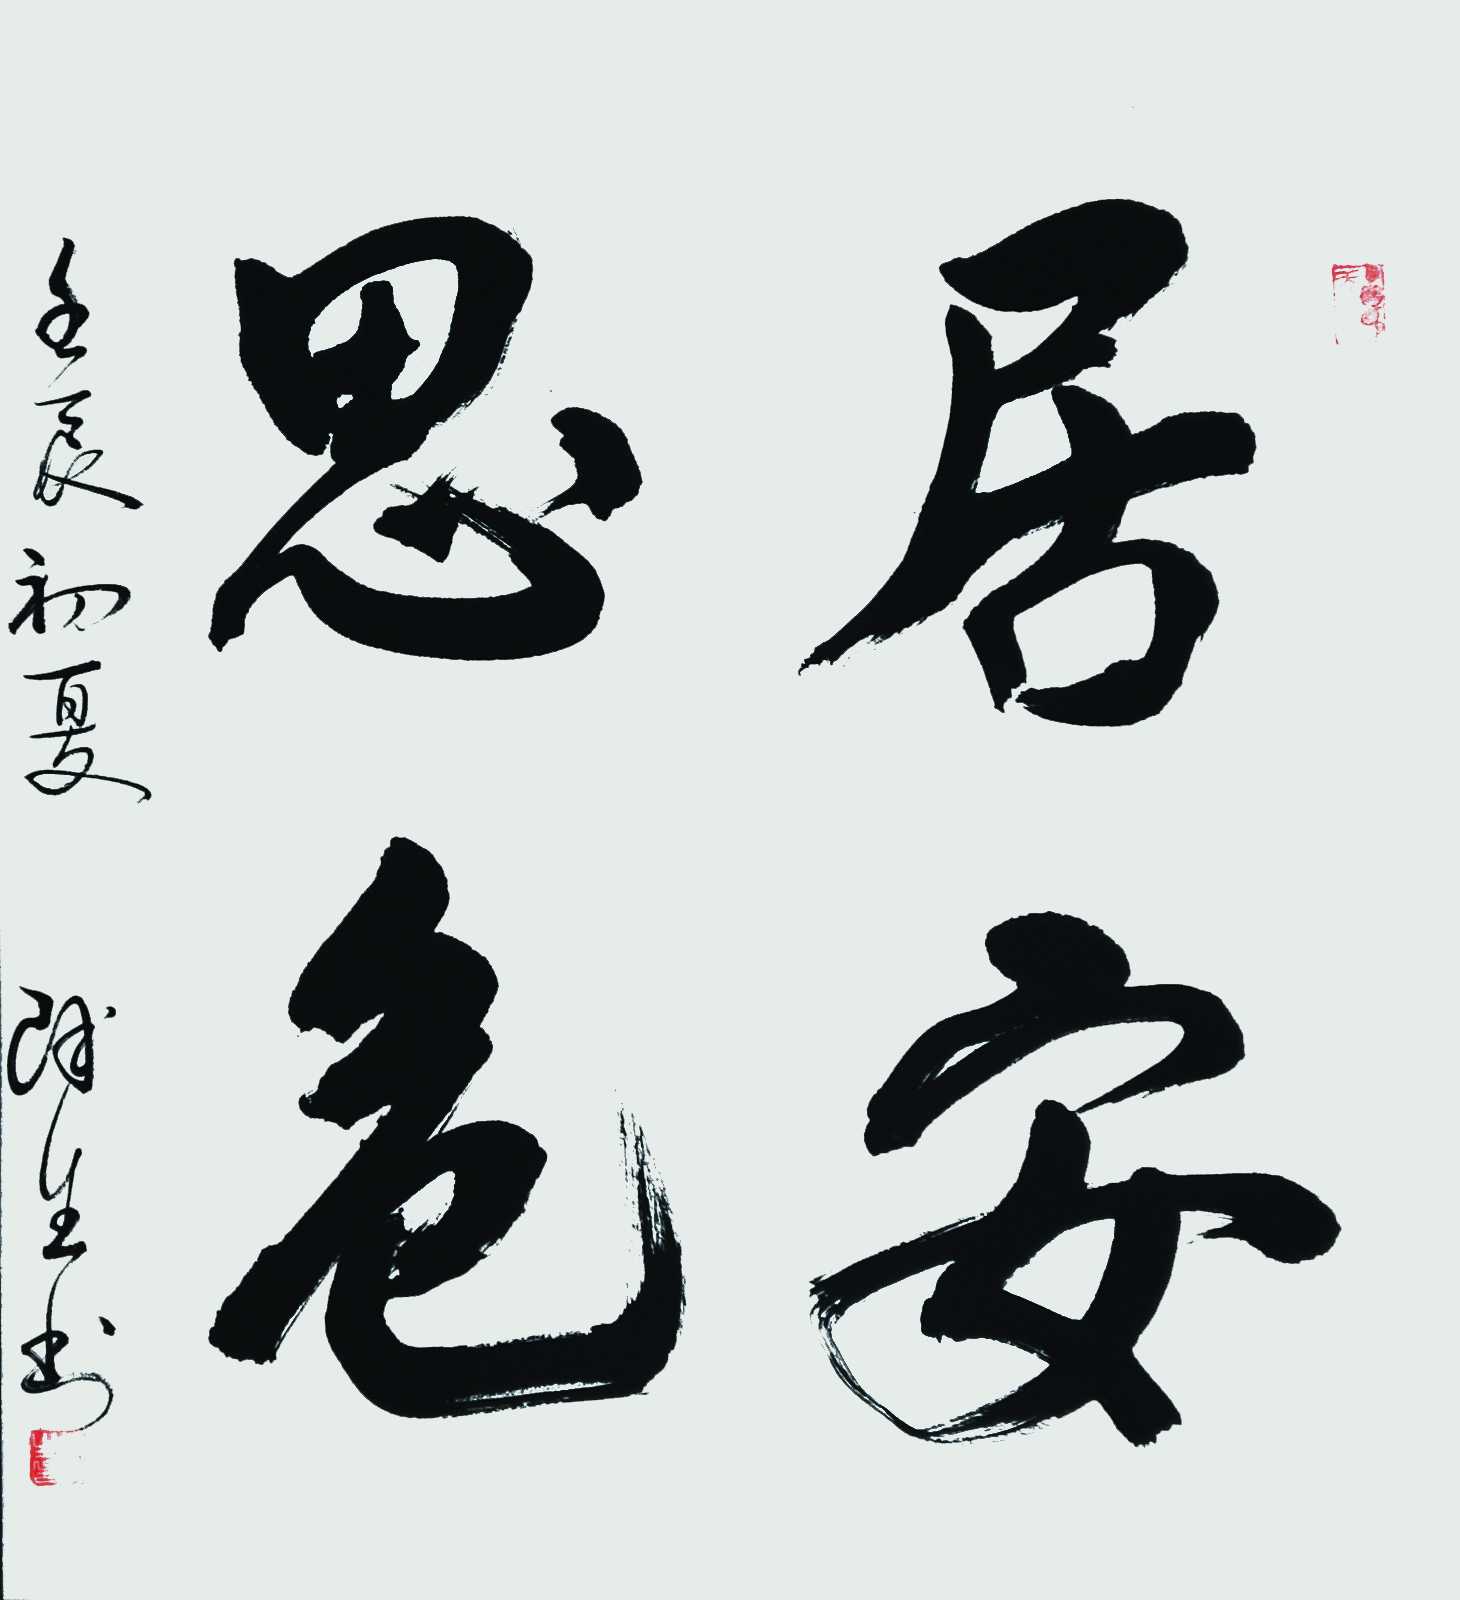 居安
思危
壬辰初夏 生书